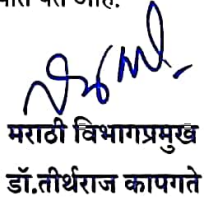 येत आहे.
मराठी विभागप्रमुख
डॉ.तीर्थराज कापगते